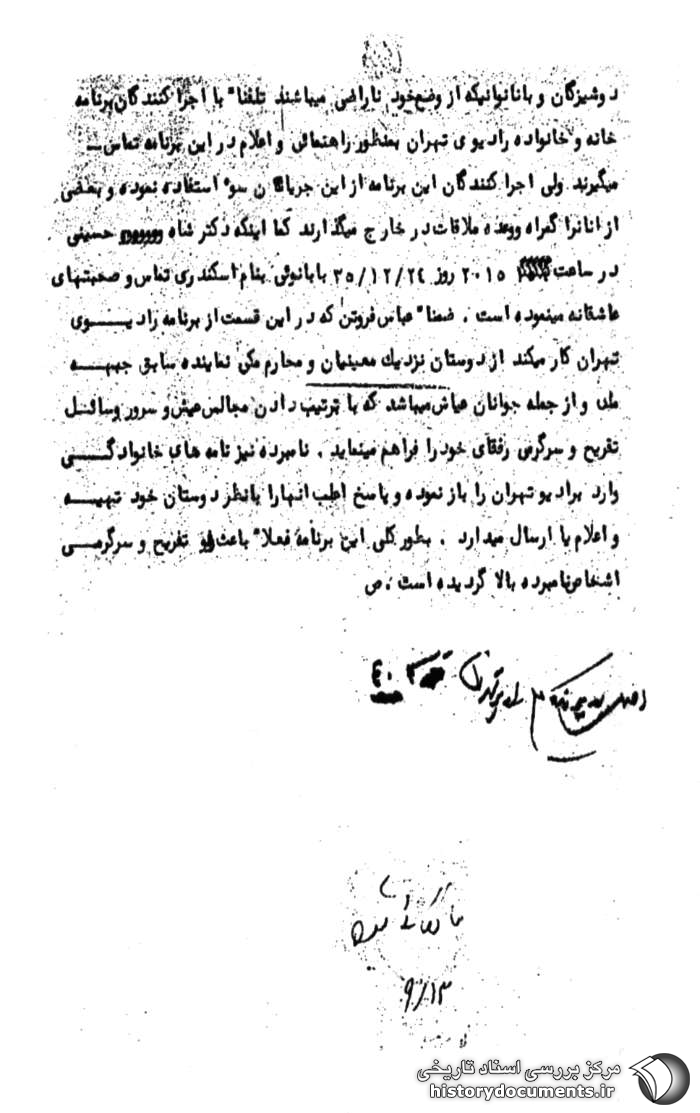 دوشیزگان و بانوانیکه از وضع خود ناراضی میباشند تلفنا" با اجرا کنندگان برنامه
خانه و خانواده رادیوی تهران بمنظور راهنمائی و اعلام در این برنامه تماس ــ
میگیرند ولی اجرا کنندگان این برنامه از این جریان سوء استفاده نموده و بعضی
از انانرا گمراه ووعده ملاقات در خارج میگذارند کما اینکه دکتر شاه حسینی
در ساعت ۲۰۱۵ روز ۳۵/۱۲/۲۴ با بانوئی بنام اسکندری تماس و صحبتهای
عاشقانه مینموده است . ضمنا" عباس فروتن که در این قسمت از برنامه رادیــوی
تهران کار میکند از دوستان نزدیک معینیان و محارم مکی نماینده سابق جبهــه
ملی و از جمله جوانان عیاش میباشد که با ترتیب دادن مجالس عیش و سرور وسائــل
تفریح و سرگرمی رفقای خود را فراهم مینماید . نامبرده نیز نامه های خانوادگــی
وارد برادیو تهران را باز نموده و پاسخ اغلب انها را بانظر دوستان خود تهیــه
و اعلام یا ارسال میدارد . بطور کلی این برنامه فعلا" باعث تفریح و سرگرمــی
اشخاص نامبرده بالا گردیده است . ص
۴۰
۹/۱۳
مرکز بررسی اسناد تاریخی
historydocuments.ir